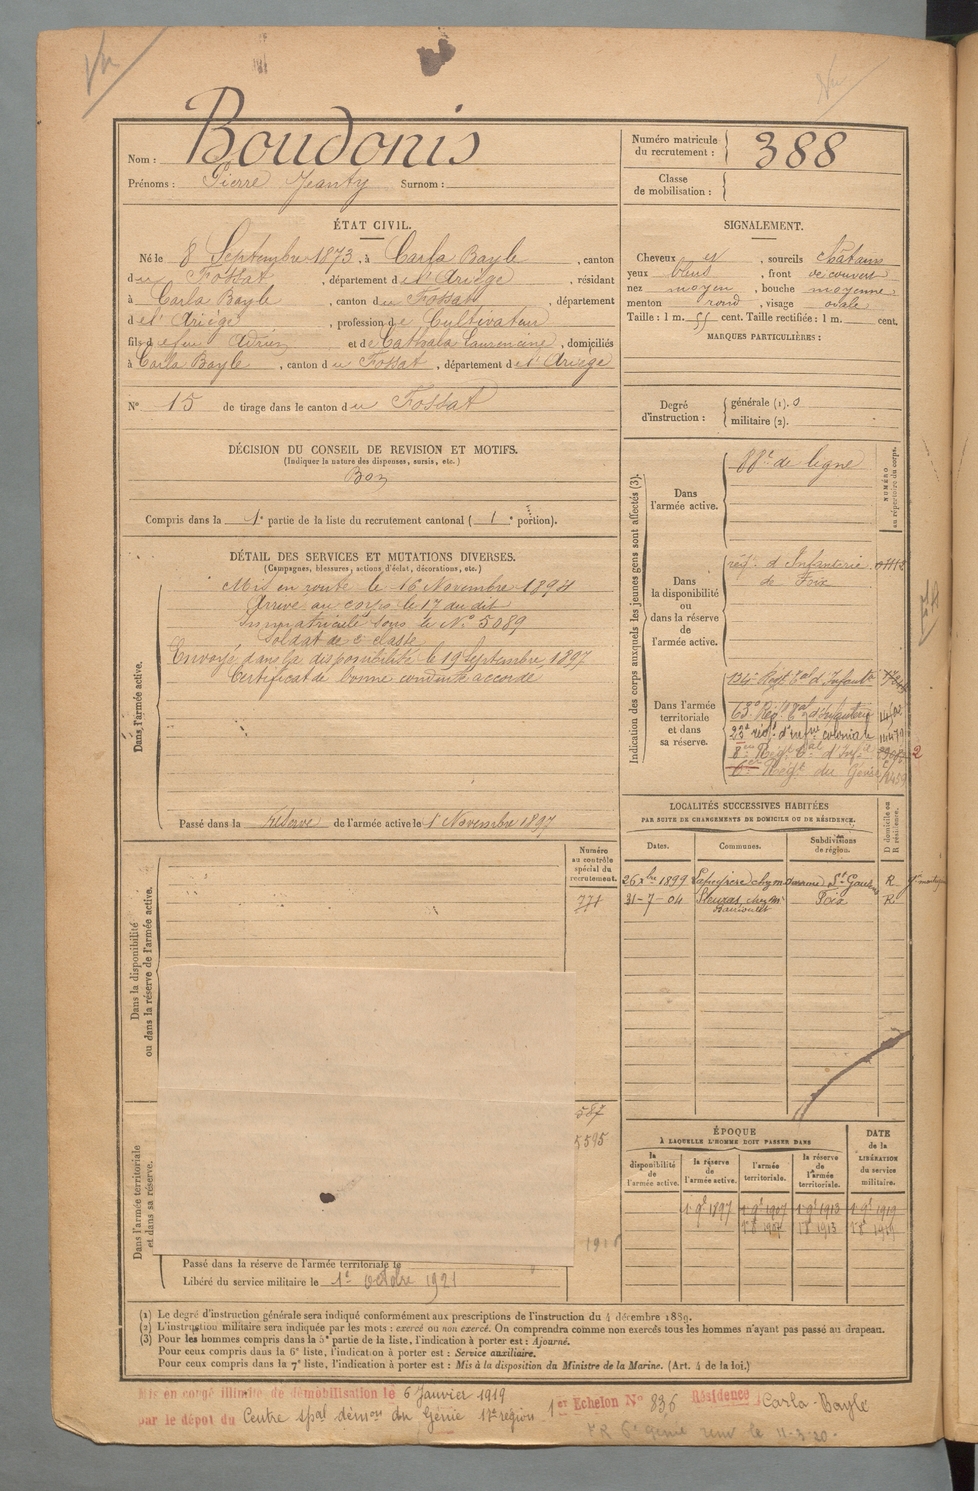 Nom : Boudonis
Prénoms : Pierre Jeanty Surnom :
Numéro matricule du recrutement : 388
Classe de mobilisation :
ÉTAT CIVIL.
Né le 8 Septembre 1873, à Carla Bayle, canton
du Fossat, département de l'Ariège, résidant
à Carla Bayle, canton du Fossat, département
de l'Ariège, profession de Cultivateur
fils de feu et de Cathala Laurencine, domiciliés
à Carla Bayle, canton du Fossat, département de l'Ariège
N° 15 de tirage dans le canton du Fossat
SIGNALEMENT.
Cheveux et, sourcils châtains
yeux bleus, front découvert
nez moyen, bouche moyenne
menton rond, visage ovale
Taille : 1 m. 55 cent. Taille rectifiée : 1 m. cent.
MARQUES PARTICULIÈRES :
Degré d'instruction : générale (1). 0
militaire (2).
DÉCISION DU CONSEIL DE REVISION ET MOTIFS.
(Indiquer la nature des dispenses, sursis, etc.)
Bon
Compris dans la 1e partie de la liste du recrutement cantonal ( 1e portion).
DÉTAIL DES SERVICES ET MUTATIONS DIVERSES.
(Campagnes, blessures, actions d'éclat, décorations, etc.)
Dans l'armée active.
Mis en route le 16 Novembre 1894
Arrivé au corps le 17 du dit
Immatriculé sous le N° 5089
Soldat de 2e classe
Envoyé dans la disponibilité le 19 Septembre 1897
Certificat de bonne conduite accordé
Passé dans la réserve de l'armée active le 1 Novembre 1897
Indication des corps auxquels les jeunes gens sont affectés (3).
NUMÉRO au répertoire du corps.
Dans l'armée active.
88e de ligne
Dans la disponibilité ou dans la réserve de l'armée active.
rég. d'Infanterie
de Foix
Dans l'armée territoriale et dans sa réserve.
134e Régt tal d'Infante
63e Régt tal d'Infanterie
23e régt d'infie coloniale
8e Régt tal d'Infie
6e Régt du Génie
2
LOCALITÉS SUCCESSIVES HABITÉES
PAR SUITE DE CHANGEMENTS DE DOMICILE OU DE RÉSIDENCE.
D domicile ou R résidence.
Dates. Communes. Subdivisions de région.
26 xbre 1899 St Gaudens R
31-7-04 Foix R
Dans la disponibilité ou dans la réserve de l'armée active.
Numéro au contrôle spécial du recrutement.
771
587
5595
Dans l'armée territoriale et dans sa réserve.
Passé dans la réserve de l'armée territoriale le
Libéré du service militaire le 1er Octobre 1921
ÉPOQUE
À LAQUELLE L'HOMME DOIT PASSER DANS
la disponibilité de l'armée active.
la réserve de l'armée active.
l'armée territoriale.
la réserve de l'armée territoriale.
DATE de la LIBÉRATION du service militaire.
1 9e 1897 1 9e 1907 1 9e 1913 1 9e 1919
1 8e 1907 1 8e 1913 1 8e 1919
(1) Le degré d'instruction générale sera indiqué conformément aux prescriptions de l'instruction du 4 décembre 1889.
(2) L'instruction militaire sera indiquée par les mots : exercé ou non exercé. On comprendra comme non exercés tous les hommes n'ayant pas passé au drapeau.
(3) Pour les hommes compris dans la 5e partie de la liste, l'indication à porter est : Ajourné.
Pour ceux compris dans la 6e liste, l'indication à porter est : Service auxiliaire.
Pour ceux compris dans la 7e liste, l'indication à porter est : Mis à la disposition du Ministre de la Marine. (Art. 4 de la loi.)
Mis en congé illimité de démobilisation le 6 Janvier 1919 1er Echelon N° 836 Résidence Carla-Bayle
par le dépôt du Centre spal démon du Génie 17e région
6e génie le 11-3-20